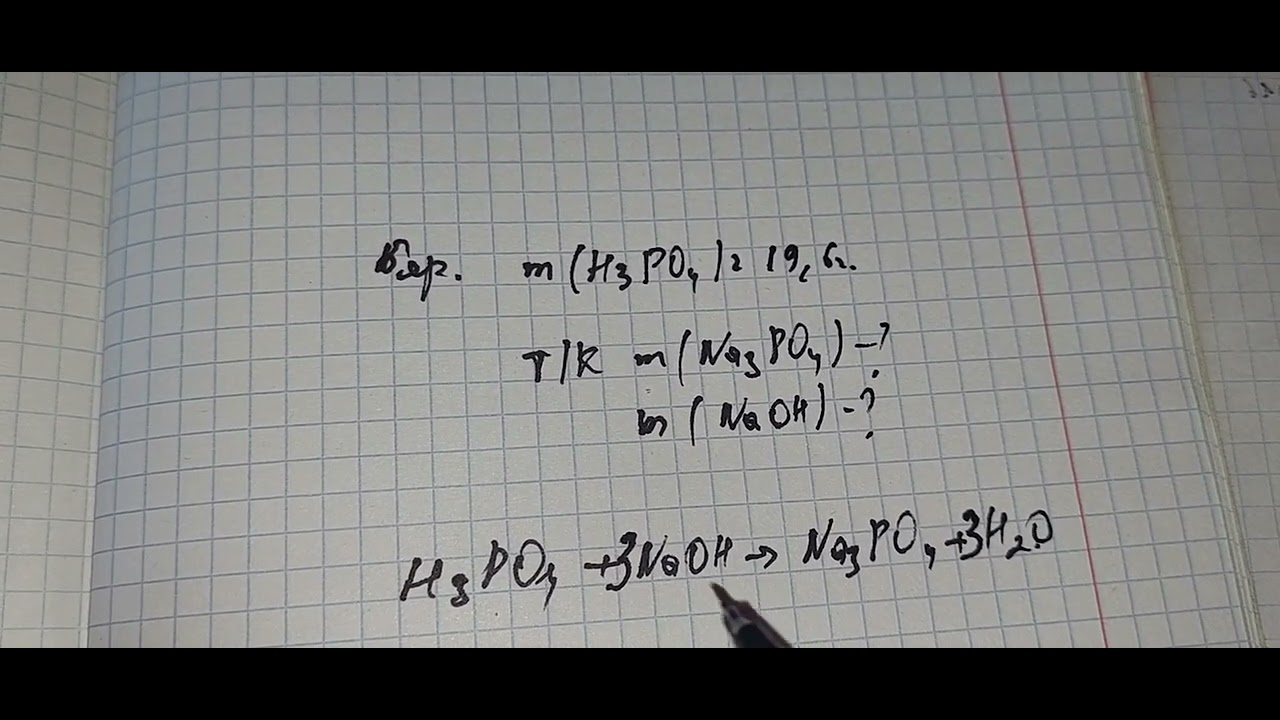 Бер. m (H₃PO₄) = 19,6г.
Т/к m (Na₃PO₄) -?
m (NaOH) -?
H₃PO₄ +3NaOH → Na₃PO₄ +3H₂O